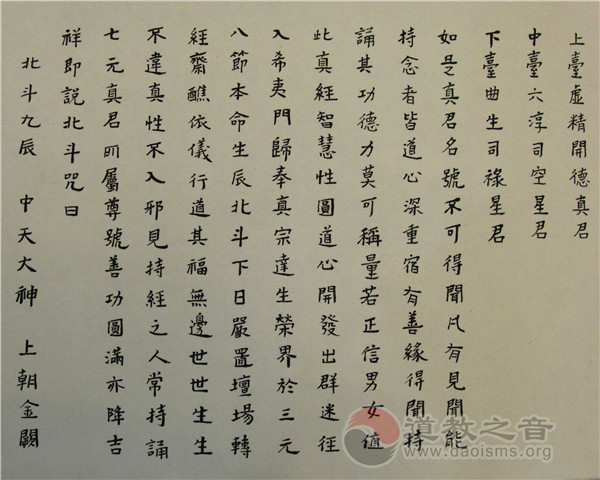 上臺虛精開德真君
中臺六淳司空星君
下臺曲生司祿星君
如是真君名號不可得聞凡有見聞能
持念者皆道心深重宿有善緣得聞持
誦其功德力莫可稱量若正信男女值
此真經智慧性圓道心開發出群迷徑
入希夷門歸奉真宗達生榮界於三元
八節本命生辰北斗下日嚴置壇場轉
經齋醮依儀行道其福無邊世世生生
不違真性不入邪見持經之人常持誦
七元真君所屬尊號善功圓滿亦降吉
祥即說北斗咒曰
北斗九辰 中天大神 上朝金闕
道教之音
www.daoisms.org